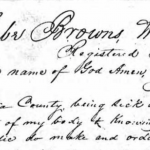 Browns, W
Registered
name of God Amen,
County, being sick
of my body & knowin
do make and orda